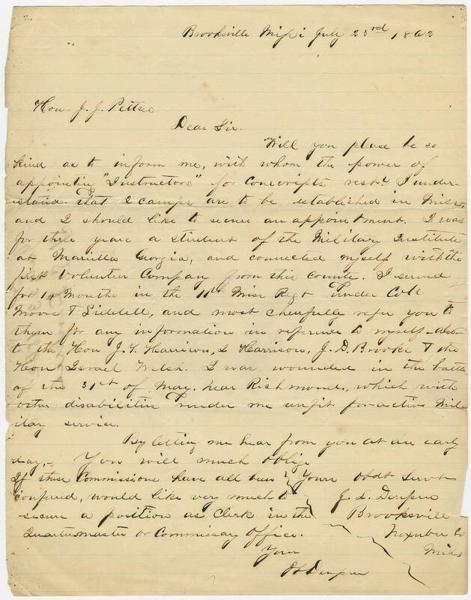 Brooksville Missi July 23rd 1862
Hon J. J. Pettus
Dear Sir.
Will you please be so
kind as to inform me, with whom the power of
appointing "Instructors" for conscripts rests. I under-
stand that 2 camps are to be established in Miss
and I should like to secure an appointment. I was
for three years a student of the Military Institute
at Marietta Georgia, and connected myself with the
first Volunteer Company from this county. I served
for months in the 11th Miss Regt under Cols
Moore & Liddell, and most cheerfully refer you to
them for any information in reference to myself also
to the Hon J. T. Harrison, Harrison, J. D. Brooke & the
Hon Israel Welsh. I was wounded in the battle
of the 31st of May, near Richmond, which with
other disabilities render me unfit for active Mili-
tary service.
By letting me hear from you at an early
day, You will much oblige
If these Commissions have all been
Your Obdt Servt
confered, would like very much to
J. L.
secure a position as Clerk in the
Brooksville
Quartermaster or Commissary Office.
Noxubee Co
Your
Miss